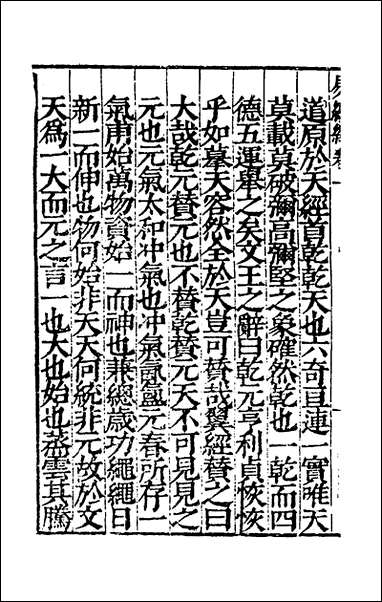 道原於天經首乾乾天也六奇亘連一實唯天
莫載莫破彌高彌堅之象確然乾也一乾而四
德五運舉之矣文王之辭曰乾元亨利貞恢恢
乎如蓋天容然全於天豈可贊哉翼經贊之曰
大哉乾元贊元也不贊乾贊元天不可見見之
元也元氣太和冲氣也冲氣氤氳元春所存一
氣甫始萬物資始一而神也兼總歲功繩繩日
新一而伸也物何始非天天何統非元故於文
天爲一大而元之言一也大也始也蒸雲其騰